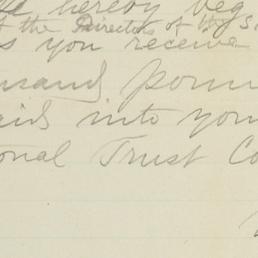 hereby beg
the Directors of the S
s you receive
usand poun
aid into you
onal Trust Co